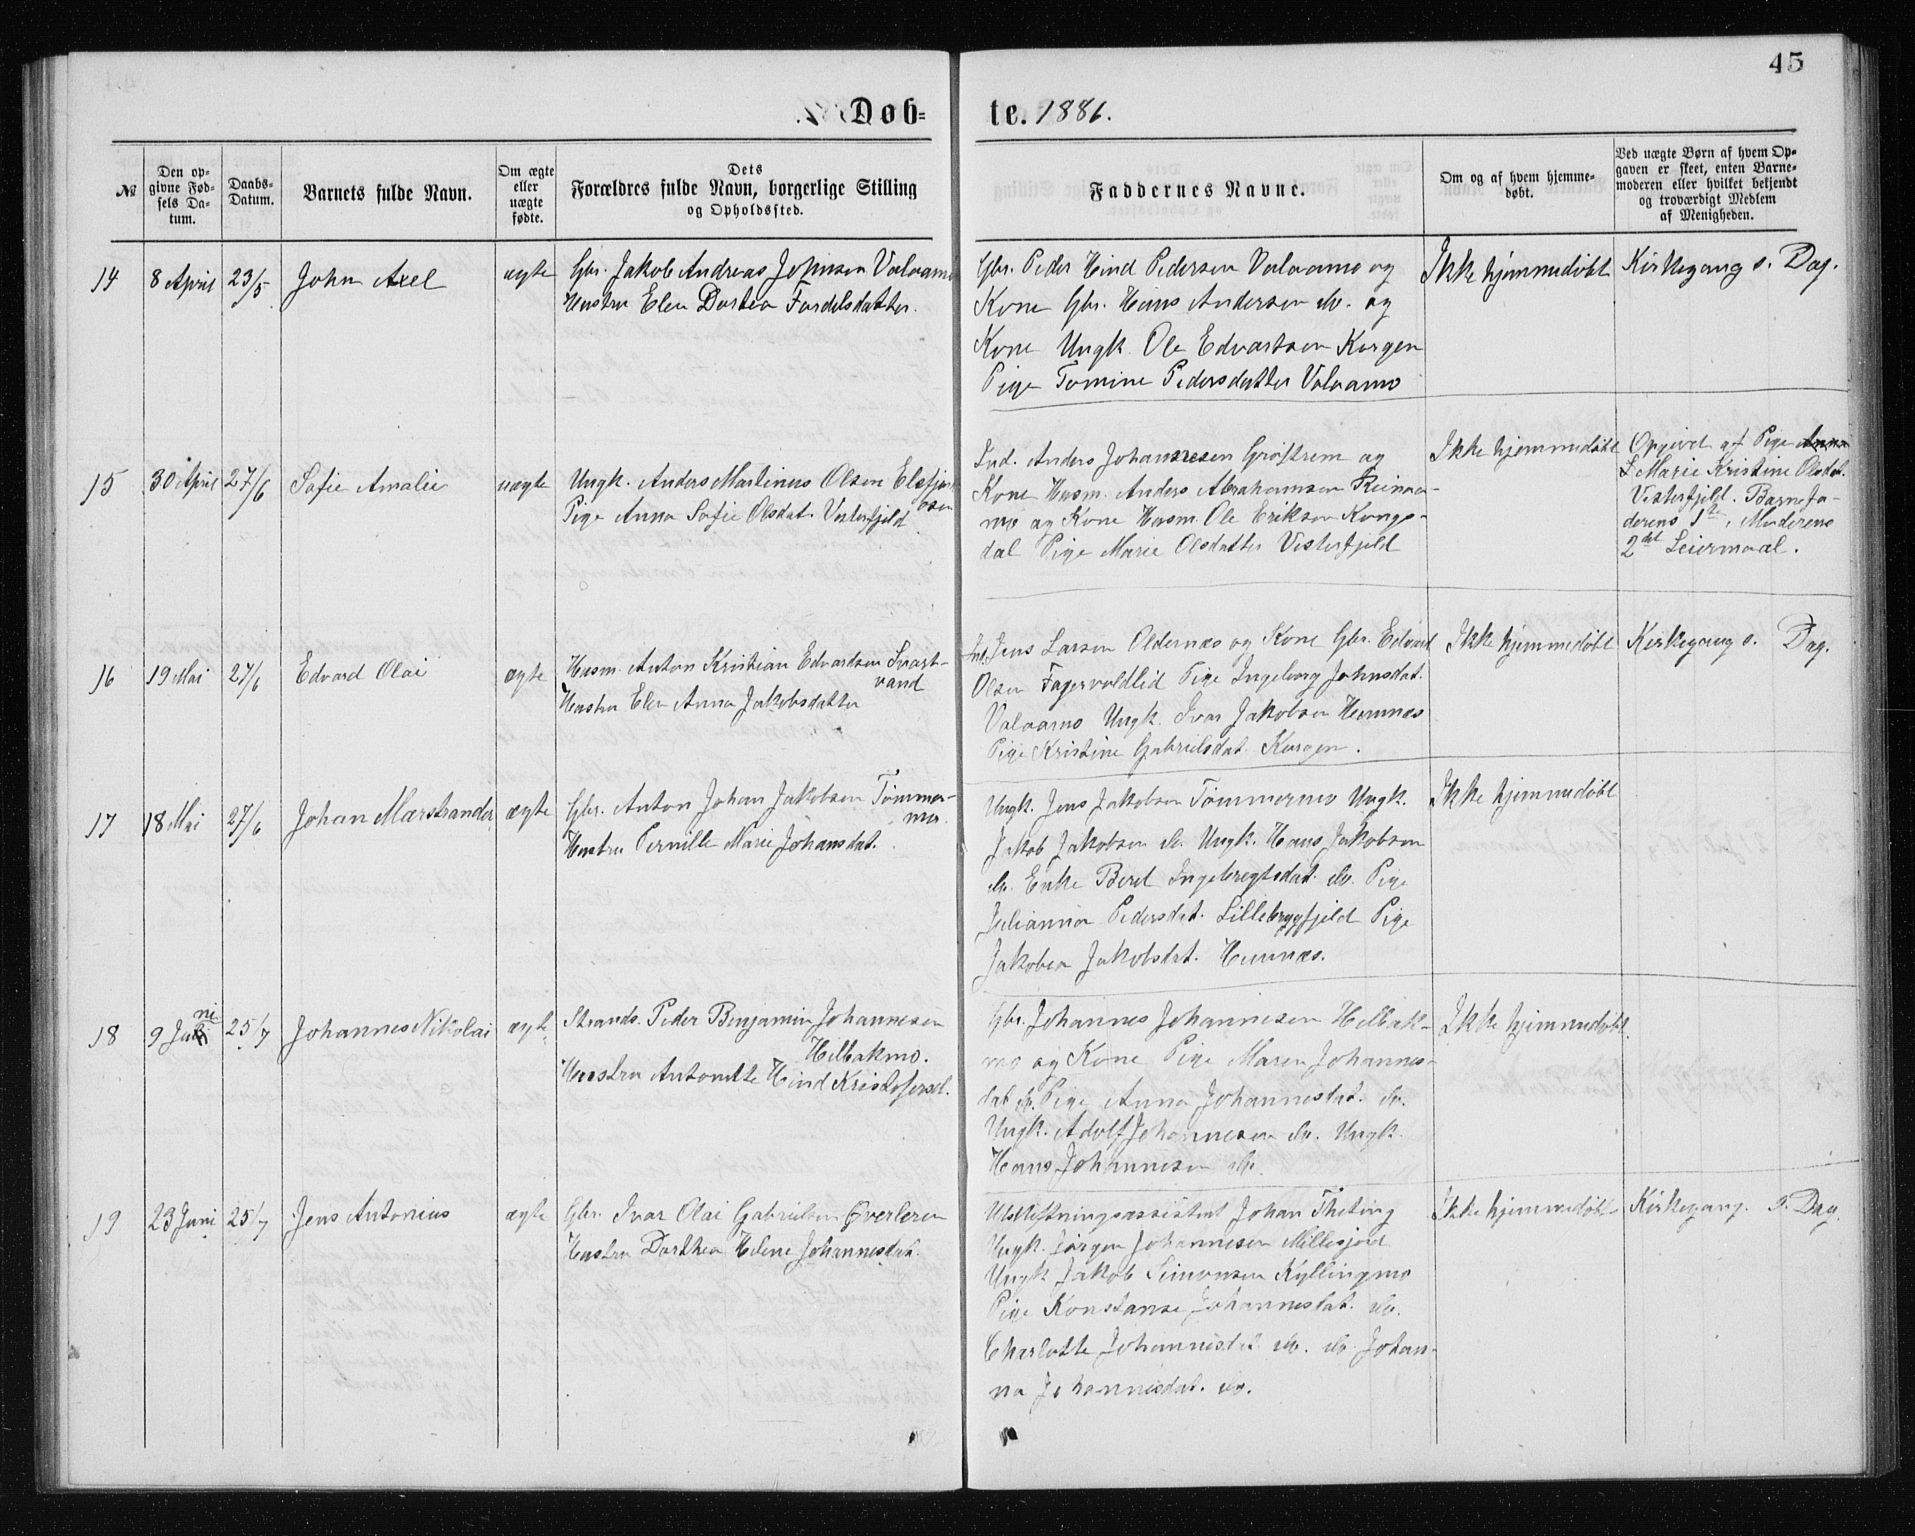 45
Døb=
te. 1886.
№
Den op-
givne Fød-
sels Da-
tum.
Daabs-
Datum.
Barnets fulde Navn.
Om ægte
eller
uægte
fødte.
Dets
Forældres fulde Navn, borgerlige Stilling
og Opholdssted.
Faddernes Navne.
Om og af hvem hjemme-
døbt.
Ved uægte Børn af hvem Op-
gaven er skeet, enten Barne-
moderen eller hvilket bekjendt
og troværdigt Medlem
af Menigheden.
14
8 April
23/5
John Axel
ægte
Gbr. Jakob Andreas Johnsen Valaamo
Hustru Elen Dortea Fordelsdatter.
Gbr. Peder Hind Pedersen Valaamo og
Kone Gbr. Hans Andersen do. og
Kone Ungk. Ole Edvartsen Korgen
Pige Tomine Pedersdatter Valaamo
Ikke hjemmedøbt
Kirkegang s. Dag.
15
30 April
27/6
Sofie Amalie
uægte
Ungk. Anders Martinus Olsen Elsfjord-
osen
Pige Anna Sofie Olsdat. Vesterfjeld
Ind. Anders Johannesen Grøftrem og
Kone Husm. Anders Abrahamsen Reinaa-
mo og Kone Husm. Ole Eriksen Kongs-
dal Pige Marie Olsdatter Vesterfjeld
Ikke hjemmedøbt
Opgivet af Pige Anna
Marie Kristine Olsdat.
Vesterfjeld. Barnefa-
derens 1ste, Moderens
2det Leiermaal.
16
19 Mai
27/6
Edvard Olai
ægte
Husm. Anton Kristian Edvardsen Svart-
vand
Hustru Elen Anna Jakobsdatter
Ind. Jens Larsen Oldernæs og Kone Gbr. Edvard
Olsen Fagervoldlid Pige Ingeborg Johnsdat.
Valaamo Ungk. Ivar Jakobsen Hemnæs
Pige Kristine Gabrielsdat. Korgen.
Ikke hjemmedøbt
Kirkegang s. Dag.
17
18 Mai
27/6
Johan Marstrander
ægte
Gbr. Anton Johan Jakobsen Tømmer-
mo.
Hustru Pernille Marie Johansdat.
Ungk. Jens Jakobsen Tømmermo Ungk.
Jakob Jakobsen do. Ungk. Hans Jakobsen
do. Enke Beret Ingebregtsdat. do. Pige
Julianna Pedersdat. Lillebrygfjeld Pige
Jakobea Jakobsdat. Hemnæs.
Ikke hjemmedøbt
18
9 Juni
25/7
Johannes Nikolai
ægte
Strands. Peder Benjamin Johannesen
Helbakmo.
Hustru Antonette Hind Kristofersd.
Gbr. Johannes Johannesen Helbak-
mo og Kone Pige Maren Johannes-
dat do. Pige Anna Johannesdat. do.
Ungk. Adolf Johannesen do. Ungk.
Hans Johannesen do.
Ikke hjemmedøbt
19
23 Juni
25/7
Jens Antonius
ægte
Gbr. Ivar Olai Gabrielsen Øverleren
Hustru Dorthea Helene Johannesdat.
Udskiftningsassistent Johan Theting
Ungk. Jørgen Johannesen Millesjord
Ungk Jakob Simonsen Kyllingmo
Pige Konstanse Johannesdat. do.
Charlotte Johannesdat do. do Johan-
na Johannesdat. do.
Ikke hjemmedøbt
Kirkegang. s. Dag.